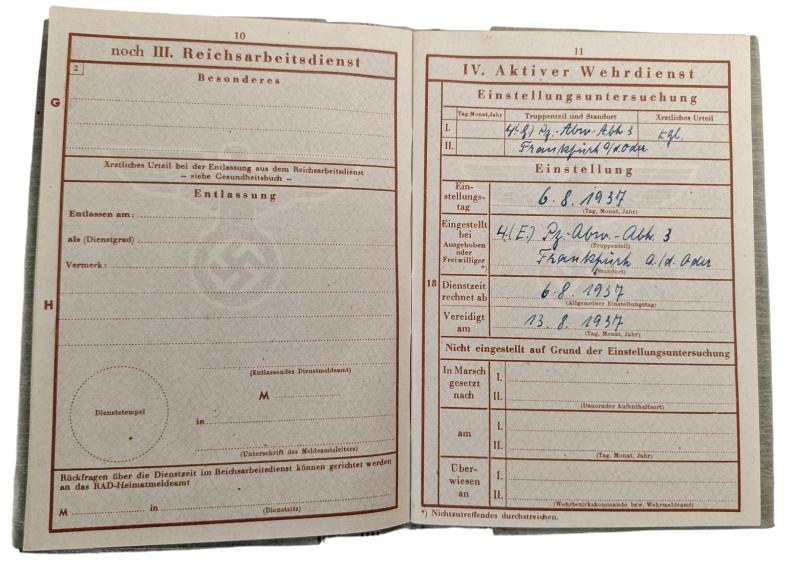 10
noch III. Reichsarbeitsdienst
2
Besonderes
G
Ärztliches Urteil bei der Entlassung aus dem Reichsarbeitsdienst
– siehe Gesundheitsbuch –
Entlassung
Entlassen am:
als (Dienstgrad)
Vermerk:
H
(Entlassendes Dienstmeldeamt)
M
Dienststempel
in
(Unterschrift des Meldeamtsleiters)
Rückfragen über die Dienstzeit im Reichsarbeitsdienst können gerichtet werden
an das RAD-Heimatmeldeamt
M in
(Dienstsitz)
11
IV. Aktiver Wehrdienst
Einstellungsuntersuchung
Tag, Monat, Jahr Truppenteil und Standort Ärztliches Urteil
I. Pz.-Abw.-Abt. 3
II. Frankfurt a/d. Oder
Einstellung
Ein-
stellungs-
tag
6. 8. 1937
(Tag, Monat, Jahr)
Eingestellt
bei
Ausgehoben
oder
Freiwilliger
*)
4.(E.) Pz.-Abw.-Abt. 3
(Truppenteil)
Frankfurt a./d. Oder
(Standort)
18
Dienstzeit
rechnet ab
6. 8. 1937
(Allgemeiner Einstellungstag)
Vereidigt
am
13. 8. 1937
(Tag, Monat, Jahr)
Nicht eingestellt auf Grund der Einstellungsuntersuchung
In Marsch
gesetzt
nach
I.
II.
(Dauernder Aufenthaltsort)
am
I.
II.
(Tag, Monat, Jahr)
Über-
wiesen
an
I.
II.
(Wehrbezirkskommando bzw. Wehrmeldeamt)
*) Nichtzutreffendes durchstreichen.